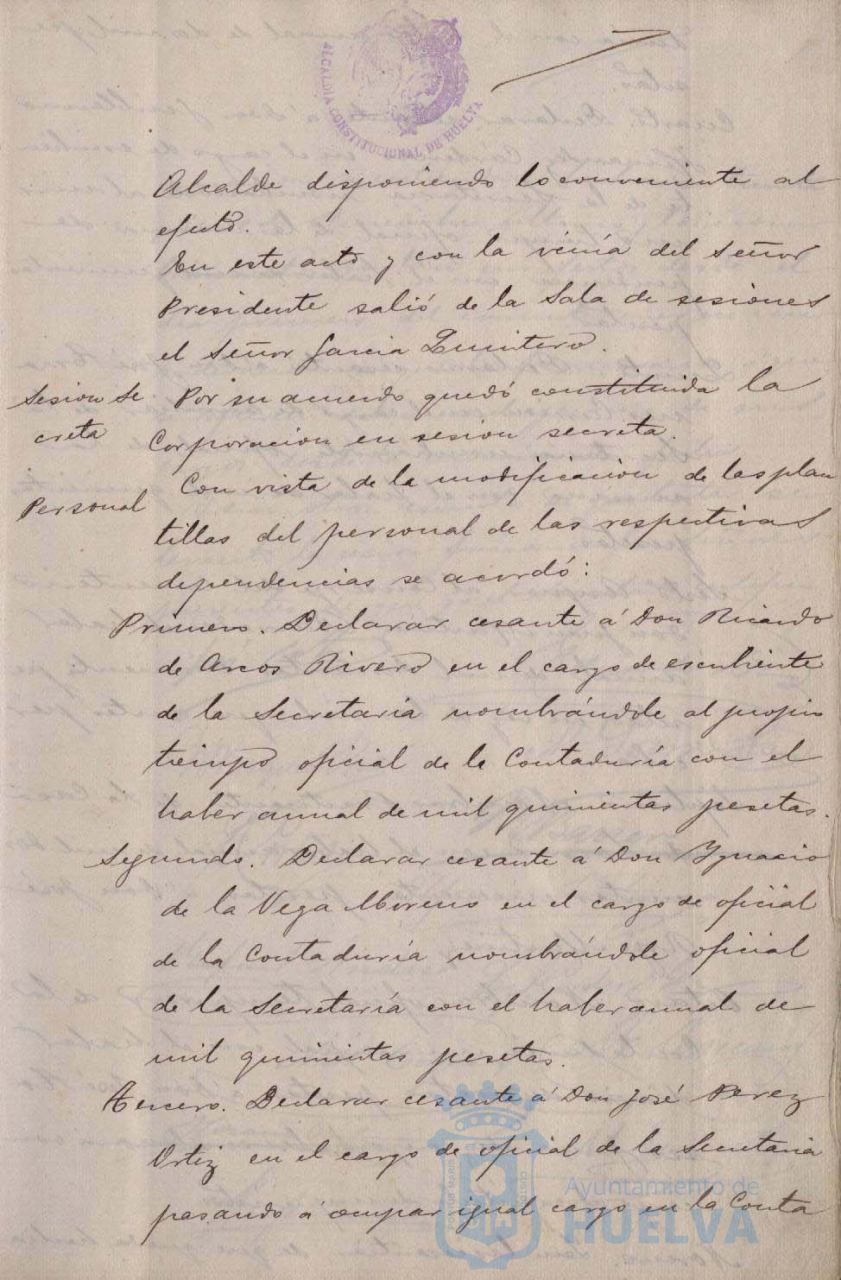 ALCALDIA CONSTITUCIONAL DE HUELVA
Alcalde disponiendo lo conveniente al
efecto.
En este acto y con la vénia del Señor
Presidente salió de la Sala de sesiones
el Señor Garcia Quintero.
Sesion Se
creta
Por su acuerdo quedó constituida la
Corporacion en sesion secreta.
Personal
Con vista de la modificacion de las plan
tillas del personal de las respectivas
dependencias se acordó:
Primero. Declarar cesante á Don Ricardo
de Arcos Rivero en el cargo de escribiente
de la Secretaria nombrándole al propio
tiempo oficial de la Contaduría con el
haber annual de mil quinientas pesetas.
Segundo. Declarar cesante á Don Ygnacio
de la Vega Moreno en el cargo de oficial
de la Contaduría nombrándole oficial
de la Secretaría con el haber annual de
mil quinientas pesetas.
Tercero. Declarar cesante á Don José Perez
Ortiz en el cargo de oficial de la Secretaria
pasando á ocupar igual cargo en la Conta
Ayuntamiento de
HUELVA